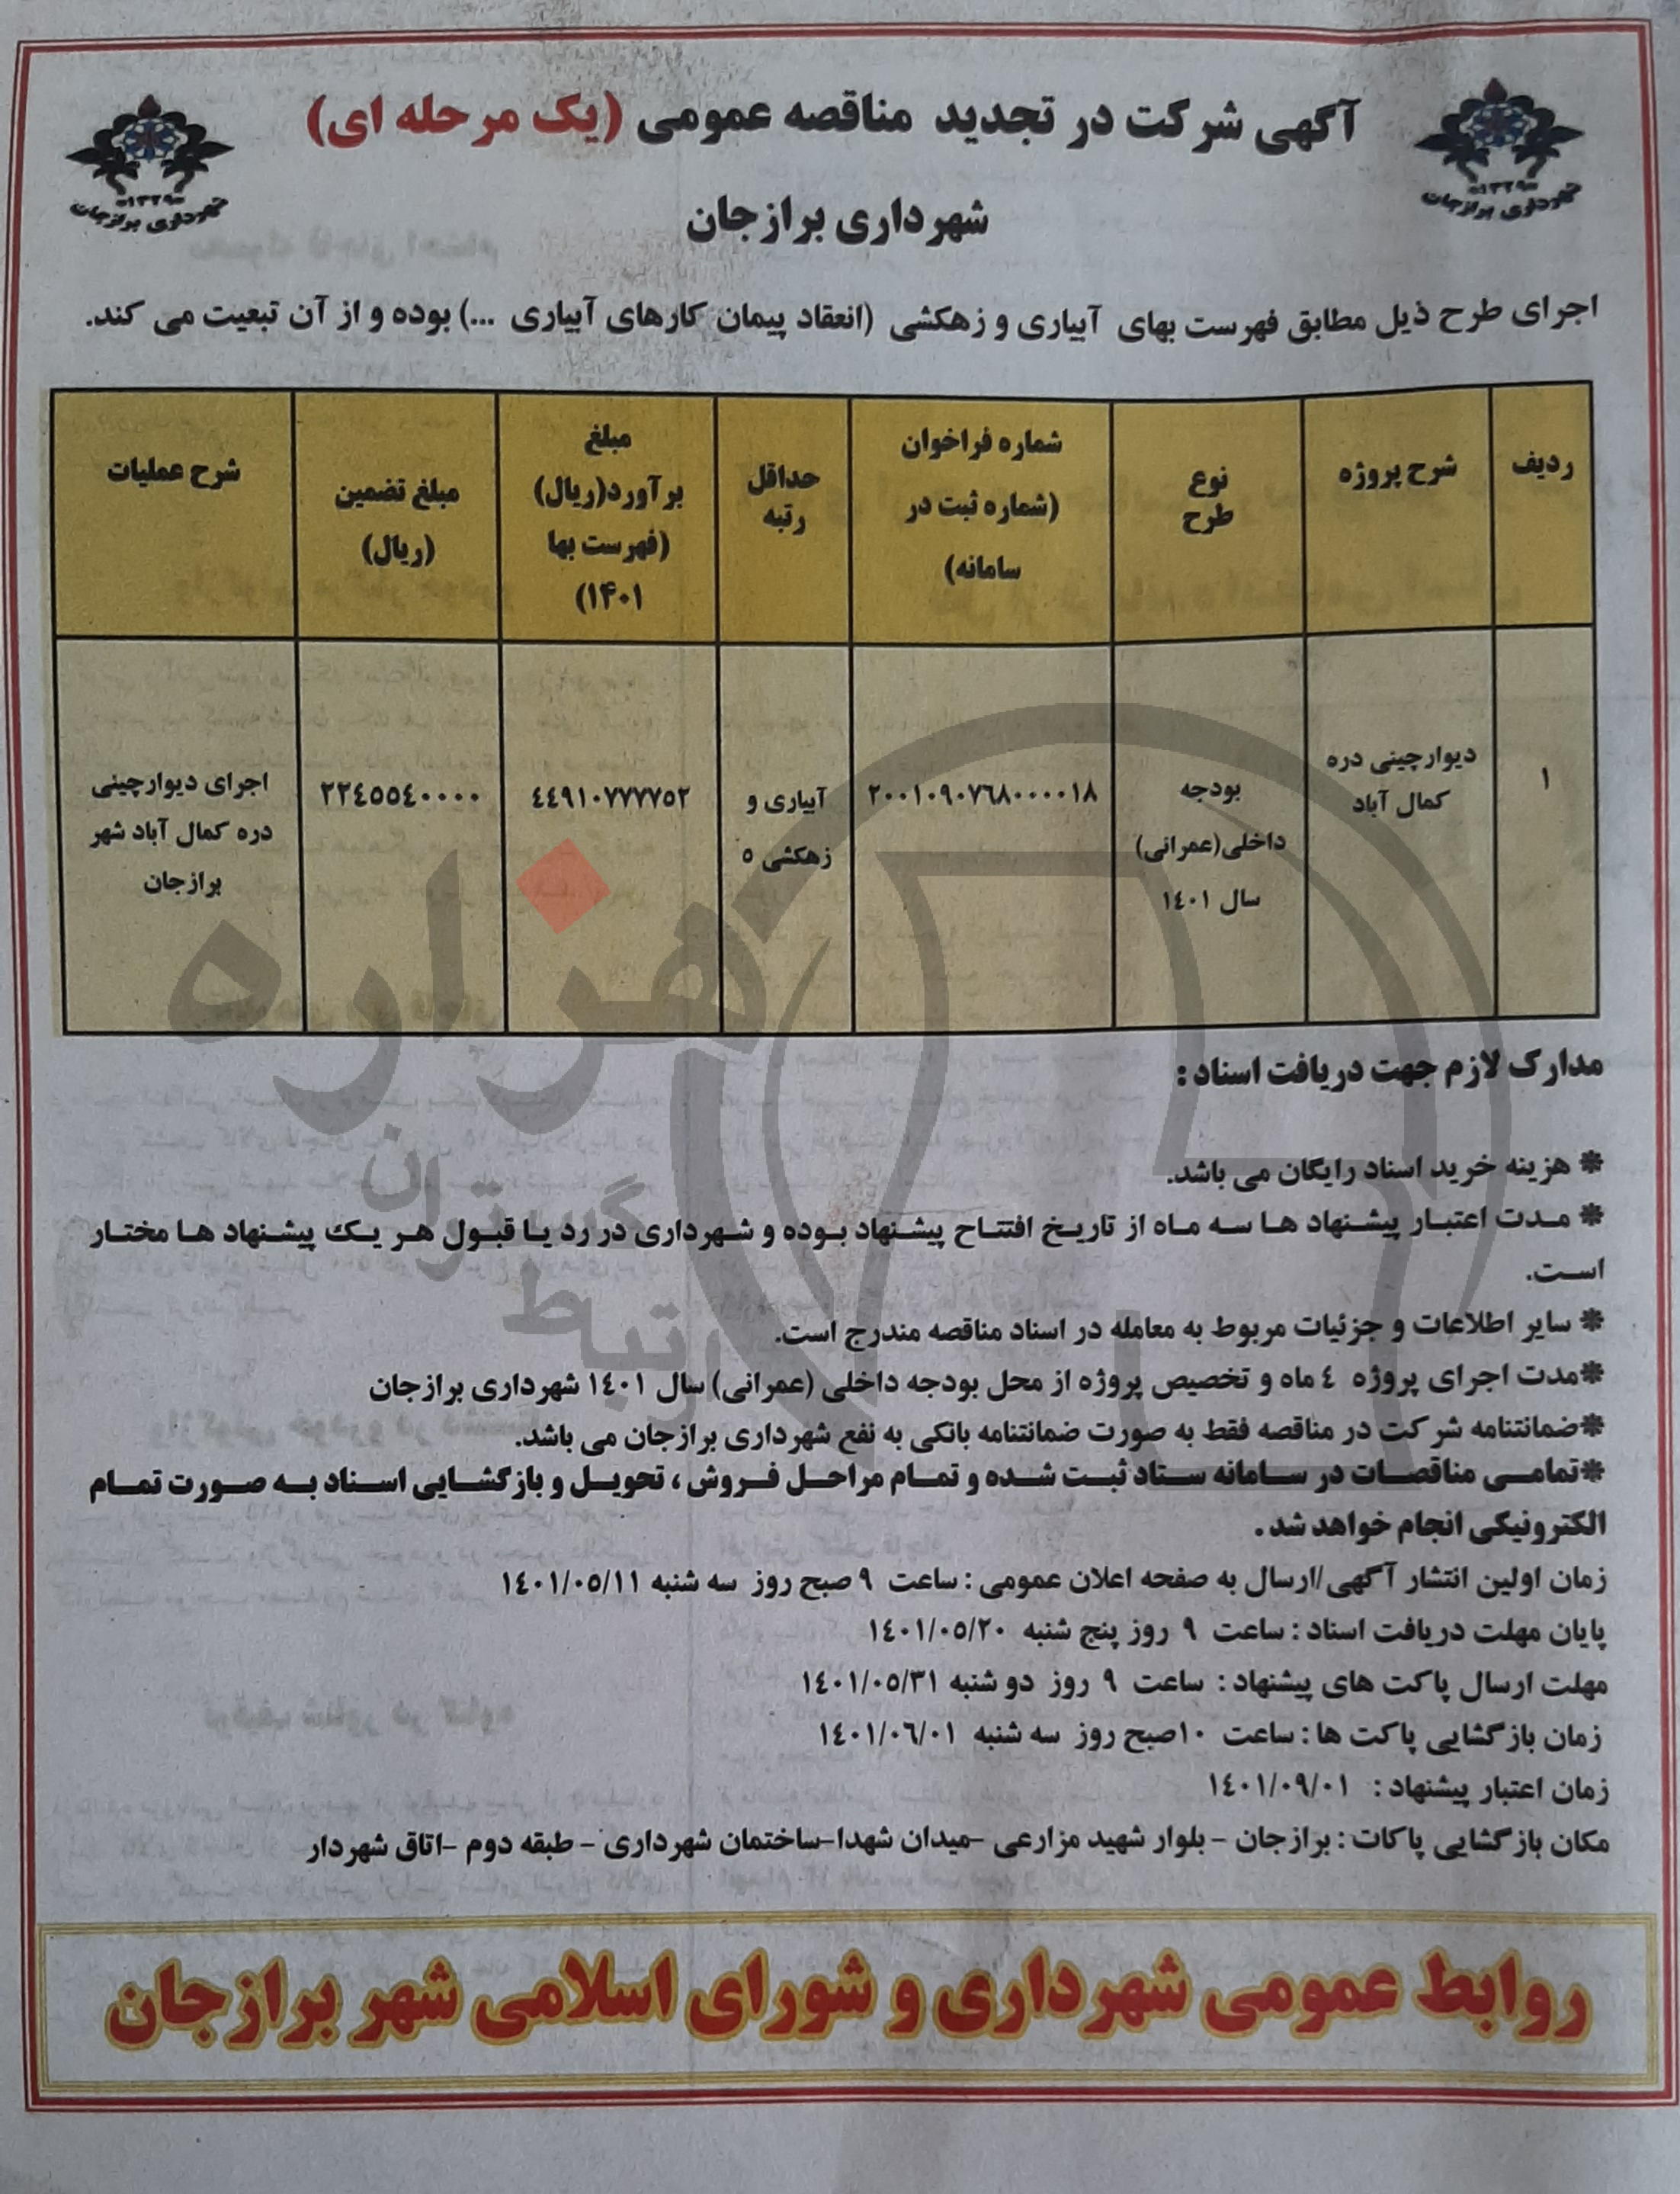 آگهی شرکت در تجدید مناقصه عمومی (یک مرحله ای)
شهرداری برازجان
شهرداری برازجان
شهرداری برازجان
اجرای طرح ذیل مطابق فهرست بهای آبیاری و زهکشی (انعقاد پیمان کارهای آبیاری ...) بوده و از آن تبعیت می کند.
ردیف
شرح پروژه
نوع
طرح
شماره فراخوان
(شماره ثبت در
سامانه)
حداقل
رتبه
مبلغ
برآورد(ریال)
(فهرست بها
۱۴۰۱)
مبلغ تضمین
(ریال)
شرح عملیات
۱
دیوارچینی دره
کمال آباد
بودجه
داخلی(عمرانی)
سال ۱٤۰۱
۲۰۰۱۰۹۰۷٦۸۰۰۰۰۱۸
آبیاری و
زهکشی ۵
٤٤۹۱۰۷۷۷۷۵۲
۲۲٤۵۵٤۰۰۰۰
اجرای دیوارچینی
دره کمال آباد شهر
برازجان
مدارک لازم جهت دریافت اسناد :
* هزینه خرید اسناد رایگان می باشد.
* مدت اعتبار پیشنهاد ها سه ماه از تاریخ افتتاح پیشنهاد بوده و شهرداری در رد یا قبول هر یک پیشنهاد ها مختار
است.
* سایر اطلاعات و جزئیات مربوط به معامله در اسناد مناقصه مندرج است.
*مدت اجرای پروژه ٤ ماه و تخصیص پروژه از محل بودجه داخلی (عمرانی) سال ۱٤۰۱ شهرداری برازجان
*ضمانتنامه شرکت در مناقصه فقط به صورت ضمانتنامه بانکی به نفع شهرداری برازجان می باشد.
*تمامی مناقصات در سامانه ستاد ثبت شده و تمام مراحل فروش ، تحویل و بازگشایی اسناد به صورت تمام
الکترونیکی انجام خواهد شد .
زمان اولین انتشار آگهی/ارسال به صفحه اعلان عمومی : ساعت ۹ صبح روز سه شنبه ۱٤۰۱/۰۵/۱۱
پایان مهلت دریافت اسناد : ساعت ۹ روز پنج شنبه ۱٤۰۱/۰۵/۲۰
مهلت ارسال پاکت های پیشنهاد : ساعت ۹ روز دو شنبه ۱٤۰۱/۰۵/۳۱
زمان بازگشایی پاکت ها : ساعت ۱۰صبح روز سه شنبه ۱٤۰۱/۰٦/۰۱
زمان اعتبار پیشنهاد : ۱٤۰۱/۰۹/۰۱
مکان بازگشایی پاکات : برازجان - بلوار شهید مزارعی -میدان شهدا-ساختمان شهرداری - طبقه دوم -اتاق شهردار
روابط عمومی شهرداری و شورای اسلامی شهر برازجان
هزاره